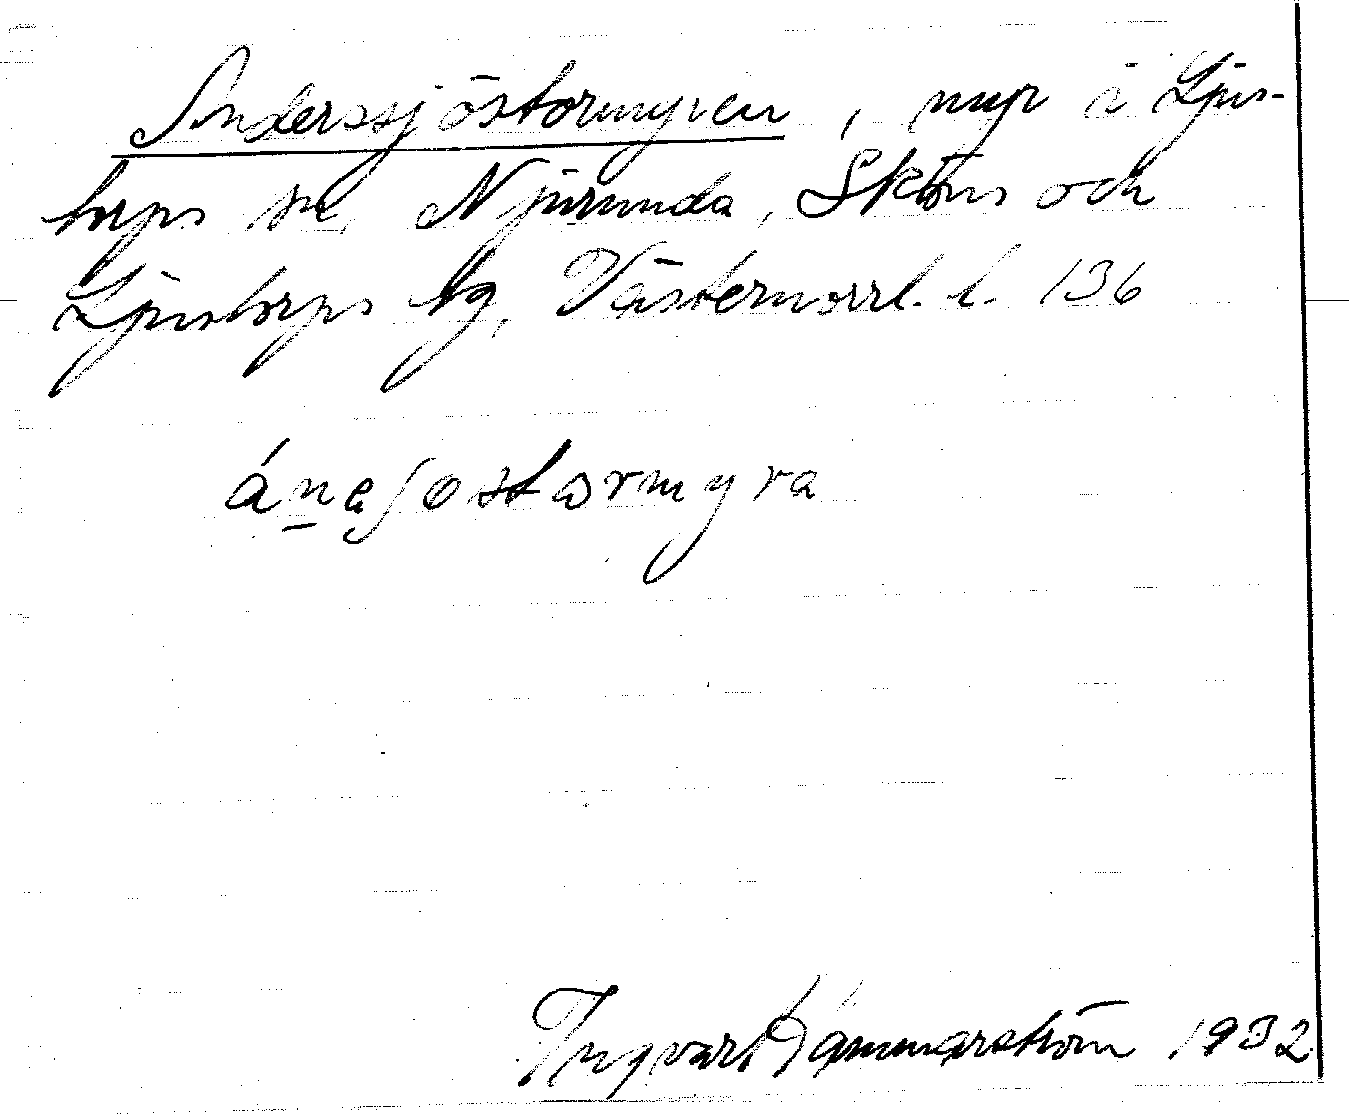 Anderssjöstormyren, myr i Ljus-
torps sn, Njurunda, Sköns och
Ljustorps tg, Västernorrl. l. 136
áneʃøstormyra
Ingvar Hammarström 1932